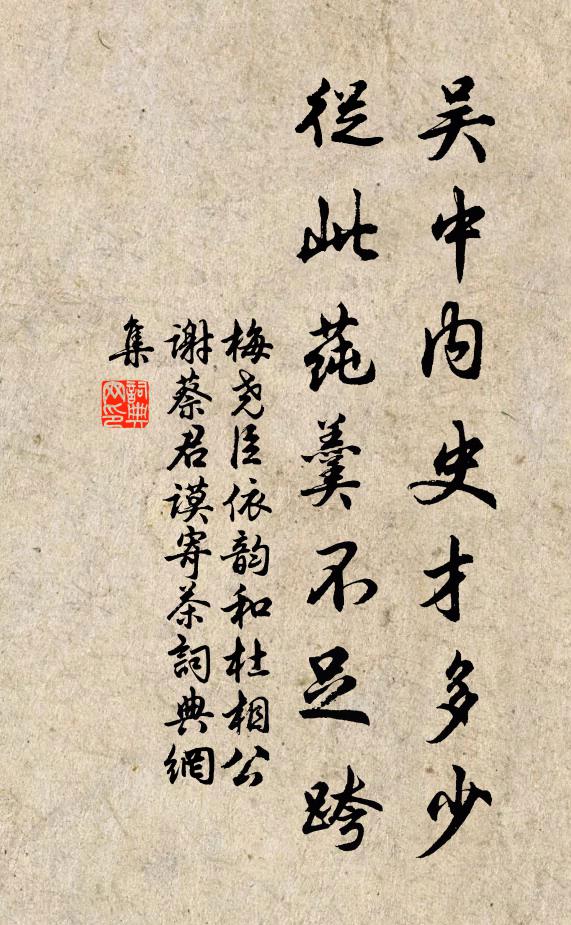 吴中内史才多少
從此莼羹不足跨
梅尧臣依韵和杜相公
谢蔡君谟寄茶詞典網
集
詞典
网印